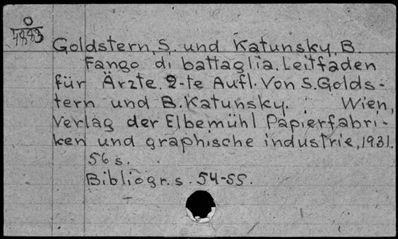 Goldstern, S. und Katunsky, B.
Fango di battaglia. Leitfaden
für Ärzte. 2-te Aufl. Von S. Golds-
tern und B. Katunsky. Wien,
Verlag der Elbemühl Papierfabri-
ken und graphische industrie, 1931.
56 s.
Bibliogr. s. 54-55.